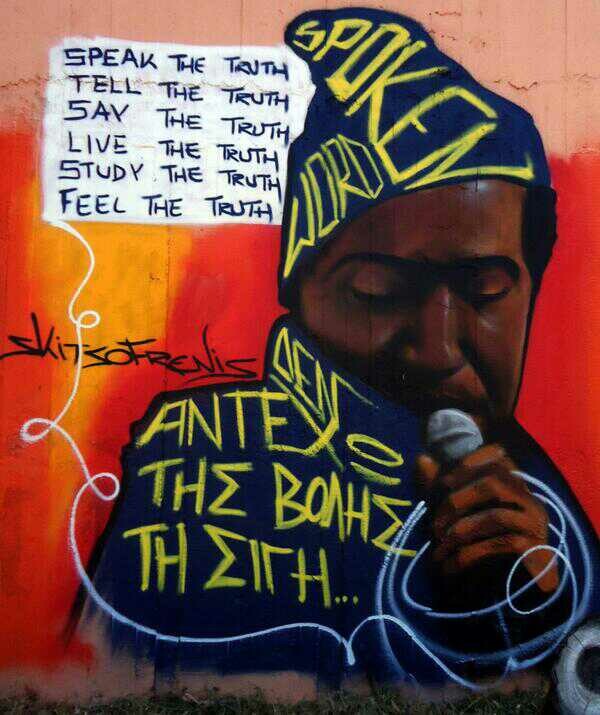 SPEAK THE TRUTH
TELL THE TRUTH
SAY THE TRUTH
LIVE THE TRUTH
STUDY THE TRUTH
FEEL THE TRUTH
SPOKEN
WORD
SKITSOFRENIS
ΔΕΝ
ΑΝΤΕΧΩ
ΤΗΣ ΒΟΛΗΣ
ΤΗ ΣΙΓΗ...